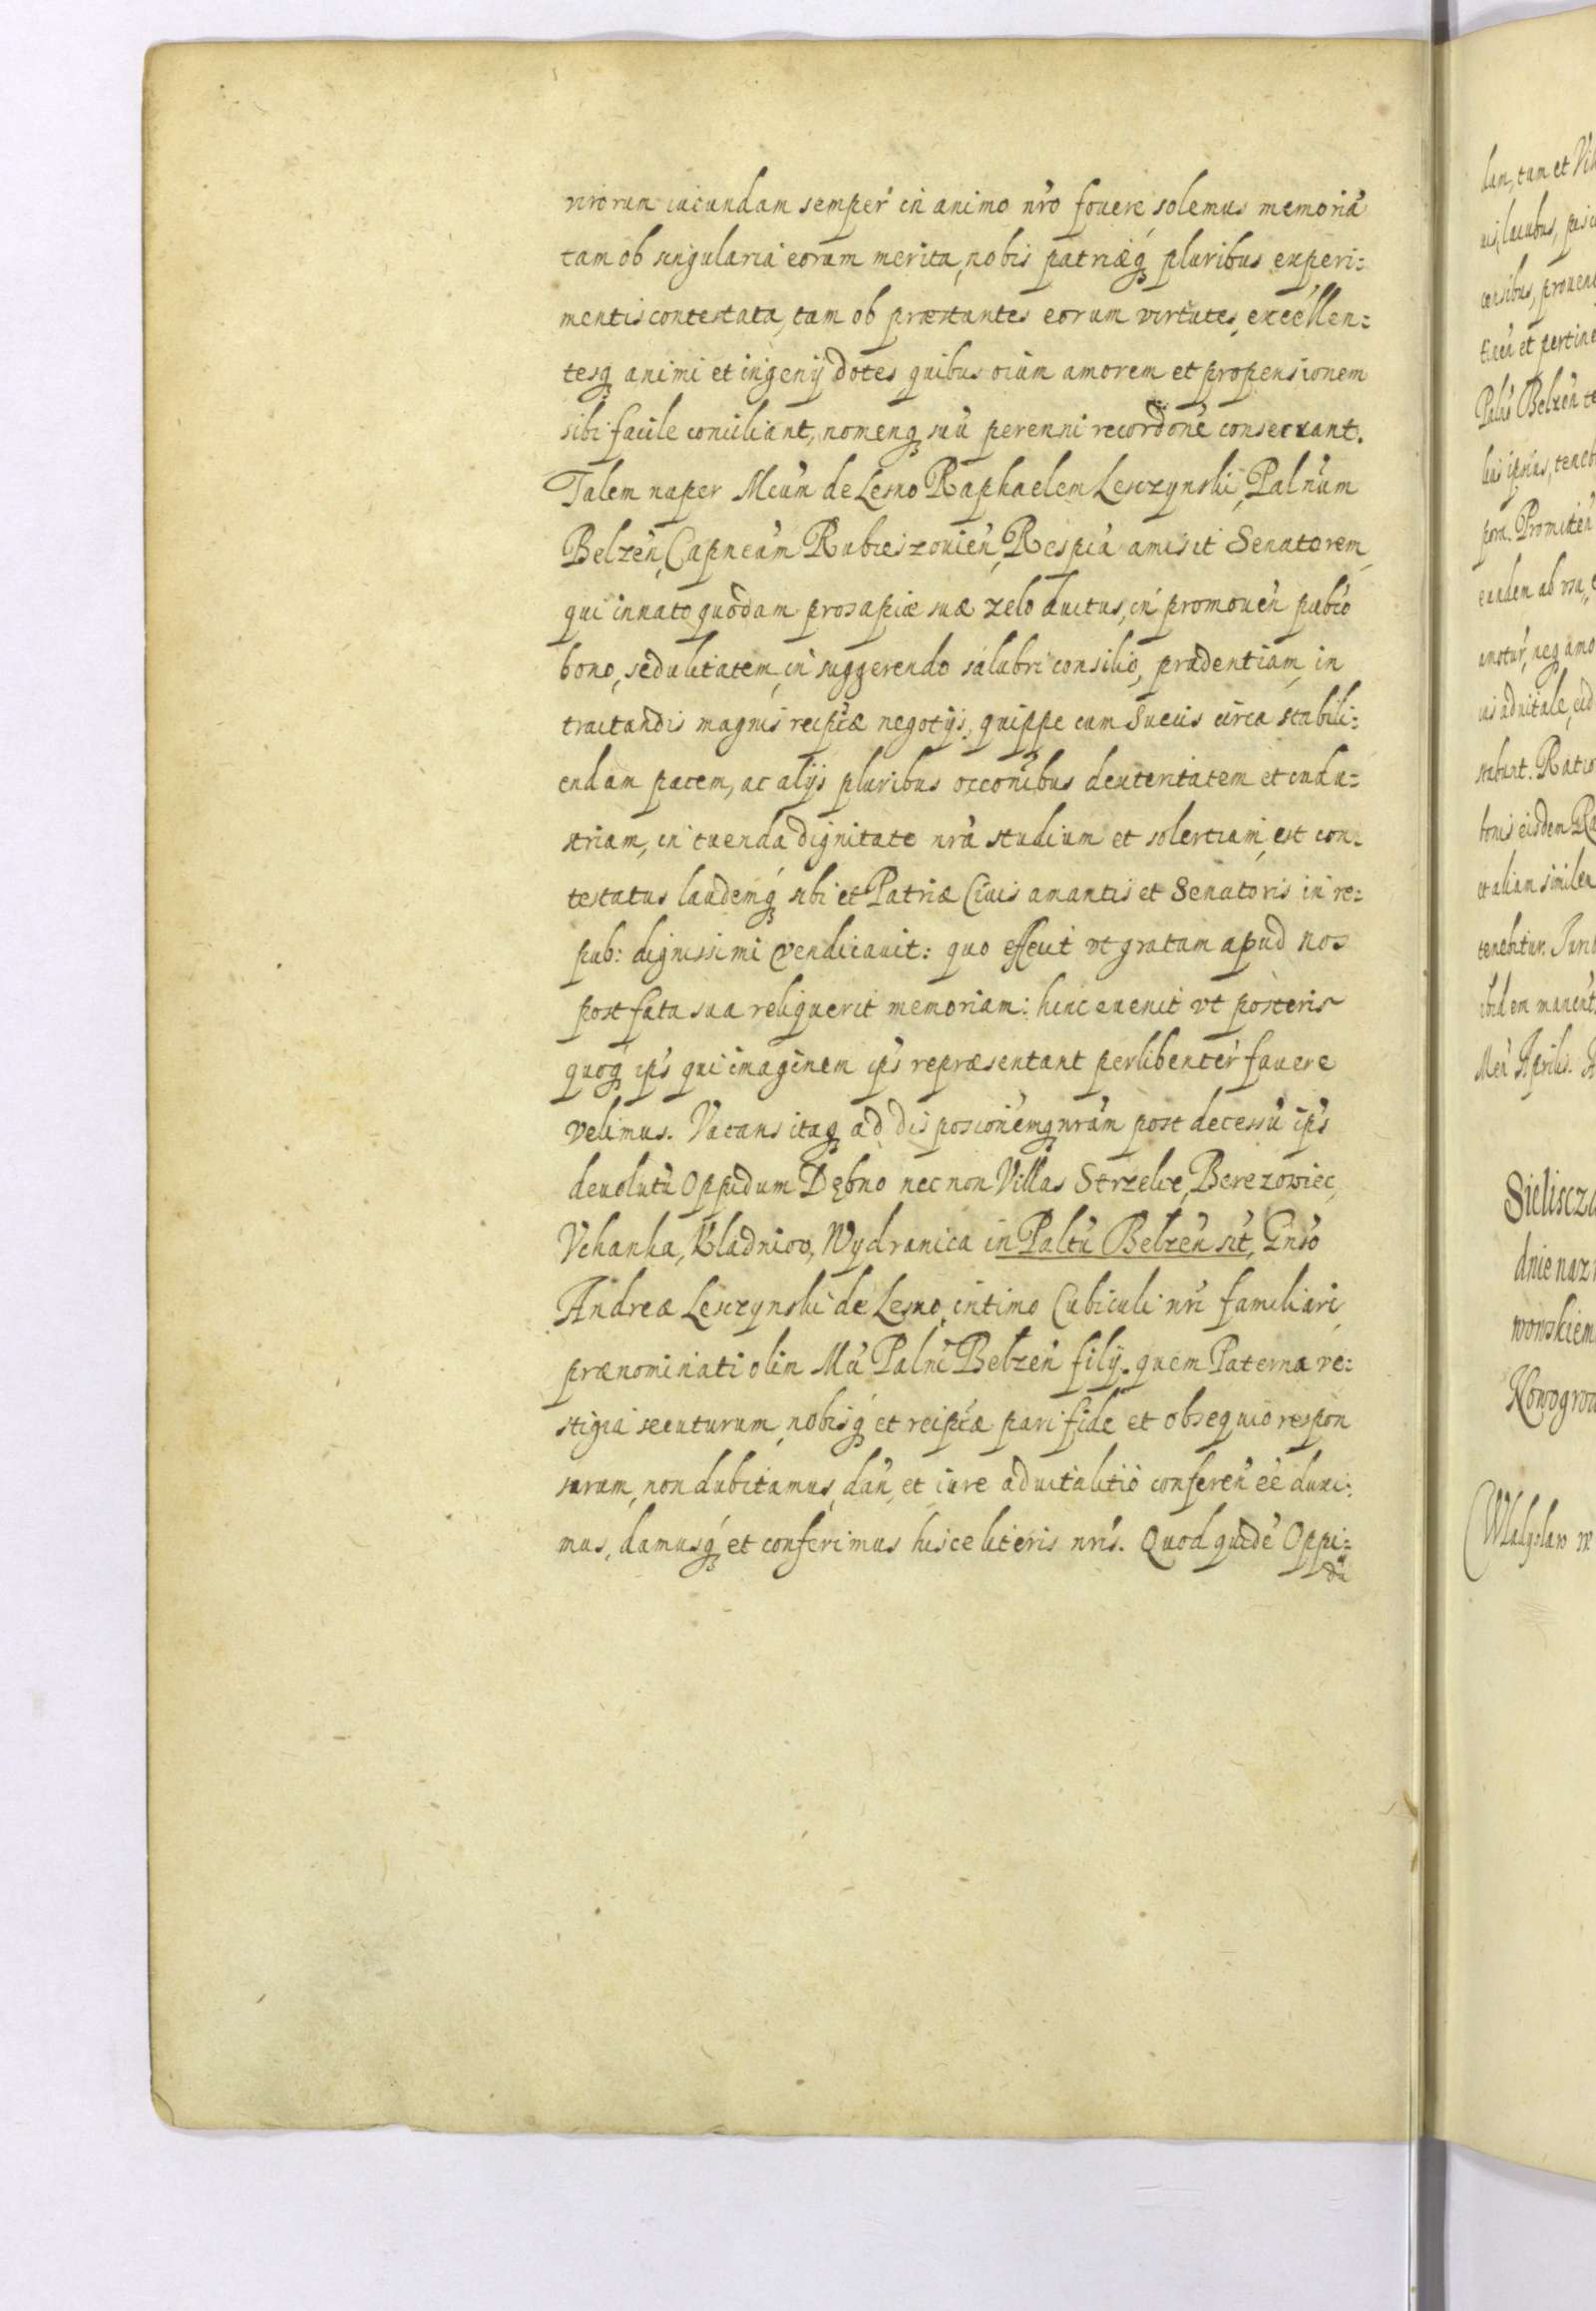 virorum iucundam semper in animo nr̃o fouere solemus memoriã
tam ob singularia eorum merita, nobis patriæq́ꝫ pluribus experi:
mentis contestata, tam ob præstantes eorum virtutes, excellen:
tesqꝫ animi et ingenij dotes quibus oiũm amorem et propensionem
sibi facile conciliant, nomenqꝫ suũ perenni recordõne conseruant.
Talem nuper Mcum̃ de Lesno Raphaelem Lesczynski, Palnum̃
Belzeñ, Capneum̃ Rubieszouień, Respcã amisit Senatorem,
qui innato quodam prosapiæ suæ zelo ductus, in promoueñ pubco
bono, sedulitatem, in suggerendo salubri consilio, prudentiam, in
tractandis magnis reipcæ negotijs, quippe cum Suecis circa stabili:
endam pacem, ac alijs pluribus occõnibus dexteritatem et indu:
striam, in tuenda dignitate nrã studium et solertiam, est con:
testatus laudemq́ꝫ sibi et Patriæ Ciuis amantis et Senatoris in re:
pub: dignissimi vendicauit: quo effecit vt gratam apud nos
post fata sua reliquerit memoriam: hinc euenit vt posteris
quoqꝫ ips̃ qui imaginem ips̃ repræsentant perlibenter fauere
velimus. Vacans itaqꝫ ad disposiõnemqꝫ nrãm post decessũ ips̃
deuolutũ Oppidum Dębno nec non Villas Strzelce, Berezowiec,
Vchanka, Kladniow, Wydranica in Paltũ Belzeñ sit̃, Gnso
Andreæ Lesczynski de Lesno, intimo Cubiculi nri familiari,
prænominati olim Mci Palni Belzeñ filij. quem Paterna ve:
stigia secuturum, nobisq́ꝫ et reipcæ pari fide et obsequio respon
surum, non dubitamus, dañ, et iure aduitalitio confereñ eẽ duxi:
mus, damusq́ꝫ et conferimus hisce literis nris̃. Quod quidẽ Oppi:
dũ
dum, tam et Vil
uis, lacubus, pisci
censibus, prouen
ticeñ et pertine
Paltũ Belzeñ te
pora. Promitteñ
eundem ab vsu,
ius aduitale, eid
stabunt. Ratio
bonis eisdem Ra
et aliam similem
tenebitur. Juri
ibidem maneñt
Meñ Aprilis. A
Sieliscza
dnie naz
wowskiem
Nowogrod